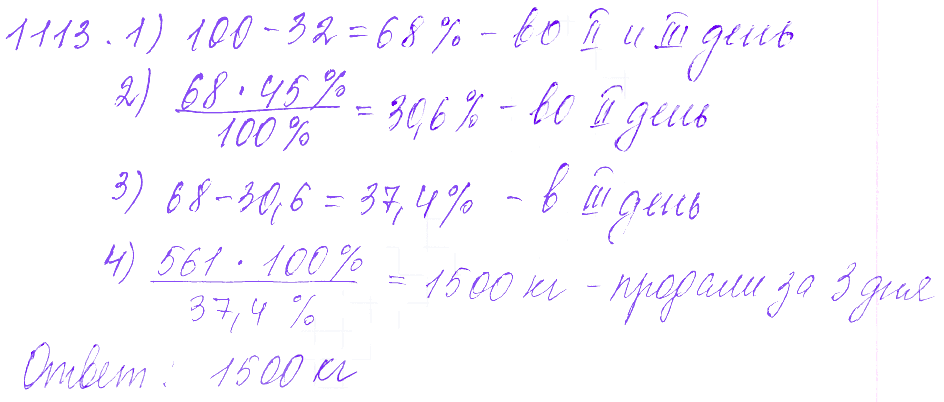 1113. 1) 100 - 32 = 68% - во II и III день
2) 68 · 45% / 100% = 30,6% - во II день
3) 68 - 30,6 = 37,4% - в III день
4) 561 · 100% / 37,4% = 1500 кг - продали за 3 дня
Ответ: 1500 кг